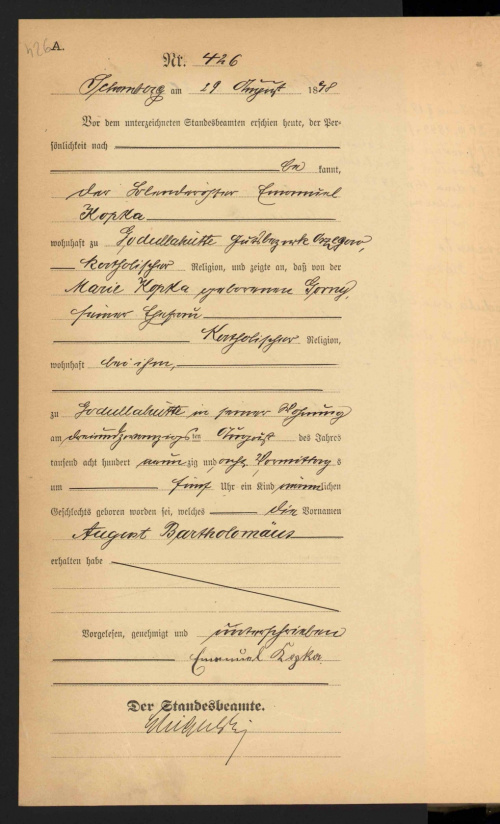 426
A.
Nr. 426
Schomberg am 29 August 1898
Vor dem unterzeichneten Standesbeamten erschien heute, der Per-
sönlichkeit nach
be kannt,
der Emanuel
Kopka
wohnhaft zu Godullahütte Gutsbezirk Orzegow,
katholischer Religion, und zeigte an, daß von der
Marie Kopka geborenen Gorny,
seiner Ehefrau
katholischer Religion,
wohnhaft bei ihm,
zu Godullahütte in seiner Wohnung
am dreiundzwanzigs ten August des Jahres
tausend acht hundert neun zig und acht Vormittag s
um fünf Uhr ein Kind männlichen
Geschlechts geboren worden sei, welches die Vornamen
August Bartholomäus
erhalten habe
Vorgelesen, genehmigt und unterschrieben
Emanuel Kopka
Der Standesbeamte.